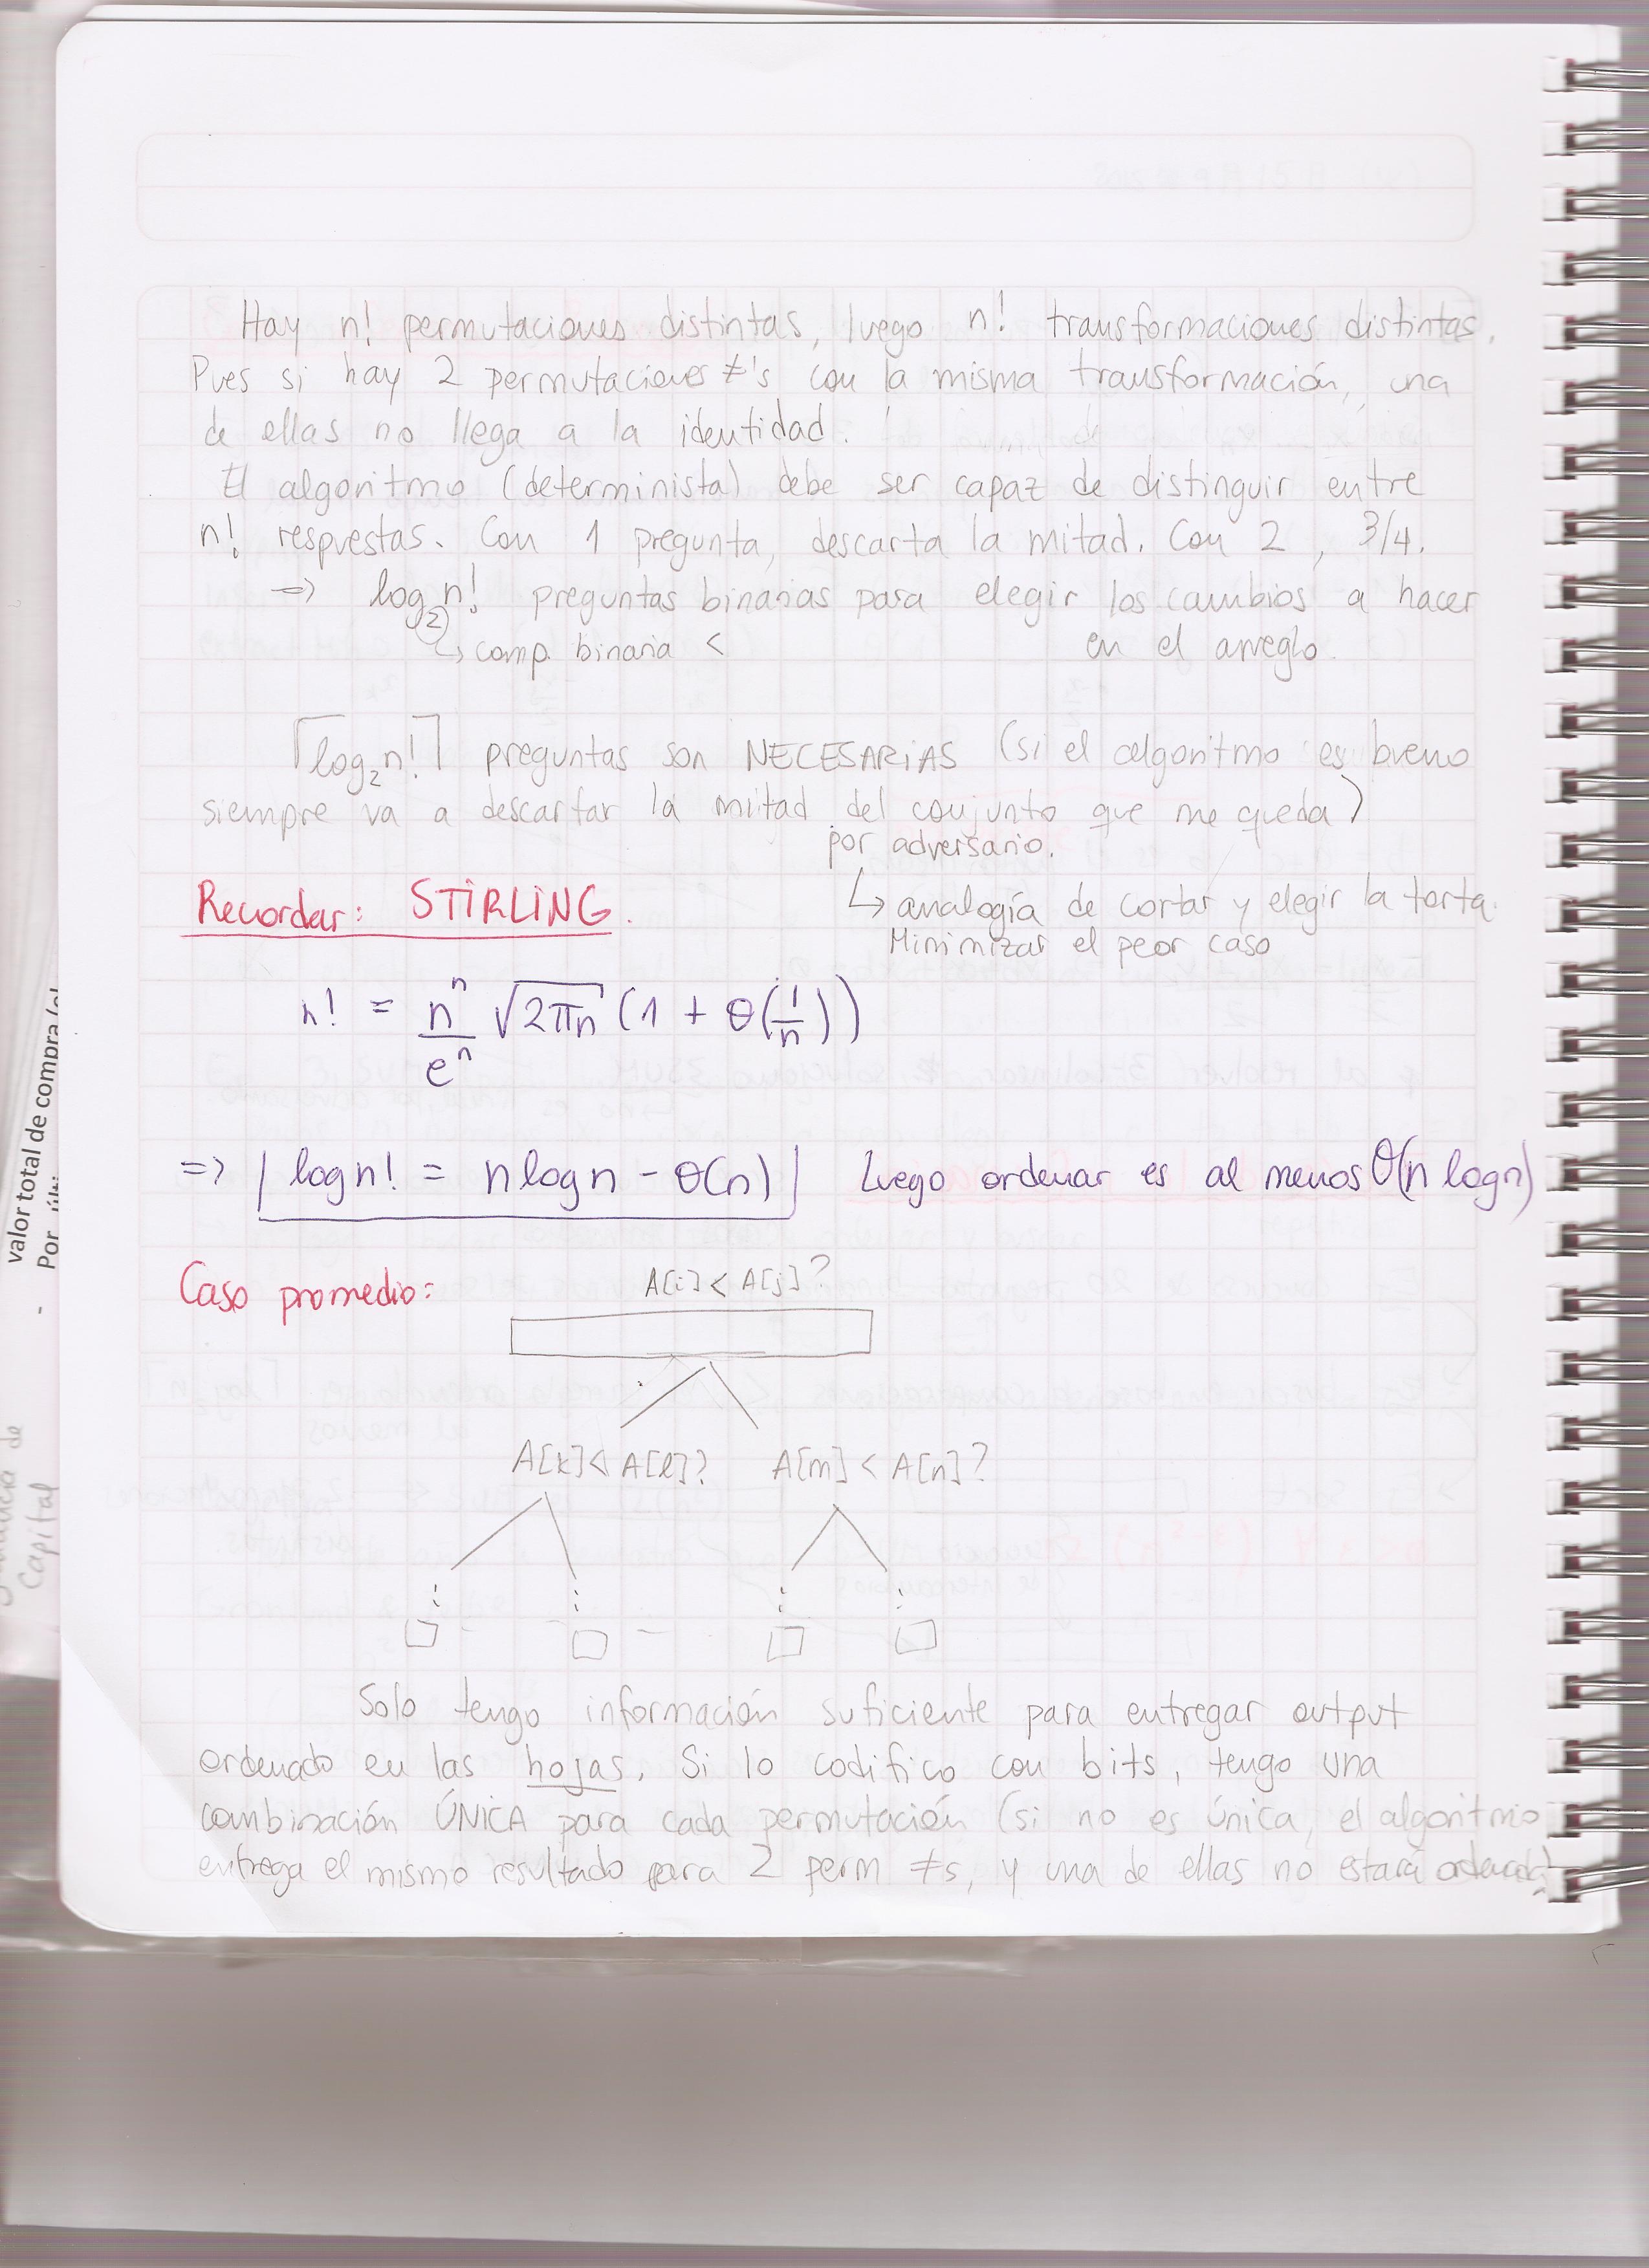 Hay n! permutaciones distintas, luego n! transformaciones distintas.
Pues si hay 2 permutaciones ≠'s con la misma transformación, una
de ellas no llega a la identidad.
El algoritmo (determinista) debe ser capaz de distinguir entre
n! respuestas. Con 1 pregunta, descarta la mitad. Con 2, 3/4.
=> log₂n! preguntas binarias para elegir los cambios a hacer
↳ comp. binaria < en el arreglo.
⌈log₂n!⌉ preguntas son NECESARIAS (si el algoritmo es bueno
siempre va a descartar la mitad del conjunto que me queda)
por adversario.
Recordar: STIRLING.
↳ analogía de cortar y elegir la torta.
Minimizar el peor caso
n! = nⁿ/eⁿ √2πn (1 + θ(1/n))
=> log n! = n log n - θ(n) Luego ordenar es al menos θ(n log n)
Caso promedio:
A[i] < A[j]?
A[k] < A[l]? A[m] < A[n]?
Solo tengo información suficiente para entregar output
ordenado en las hojas. Si lo codifico con bits, tengo una
combinación ÚNICA para cada permutación (si no es única, el algoritmo
entrega el mismo resultado para 2 perm ≠s, y una de ellas no estará ordenada)
valor total de compra
- Por
Capital